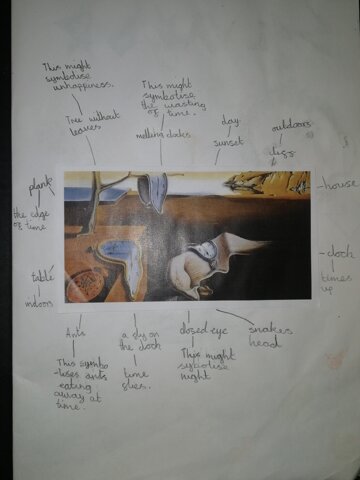 This might
symbolise
unhappiness.
Tree without
leaves
This might
symbolise
the wasting
of time.
melting clocks
day
sunset
outdoors
plank
the edge
of time
house
clock
times
up
table
indoors
Ants
This symbo
-lises ants
eating
away at
time.
a fly on
the clock
time
flies.
closed eye
This might
symbolise
night
snakes
head